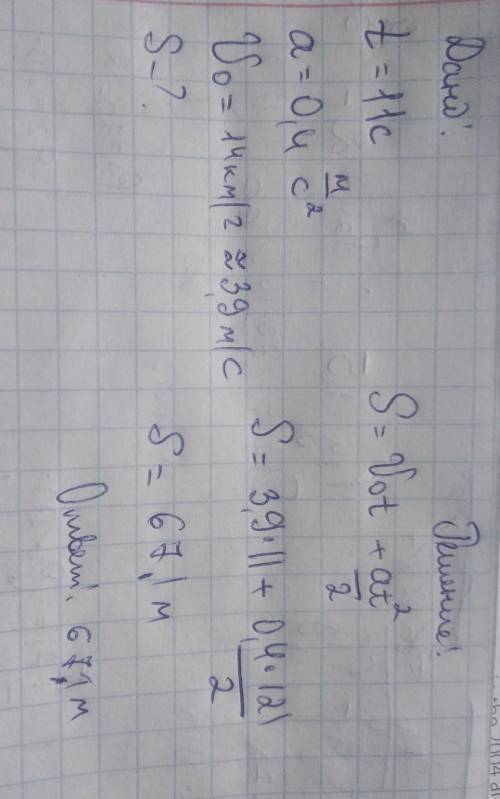 Дано:
t = 11с
a = 0,4 м/с²
V₀ = 14км/г ≈ 3,9 м/с
S-?
Решение:
S = V₀t + at²/2
S = 3,9·11 + 0,4·121/2
S = 67,1 м
Ответ: 67,1 м